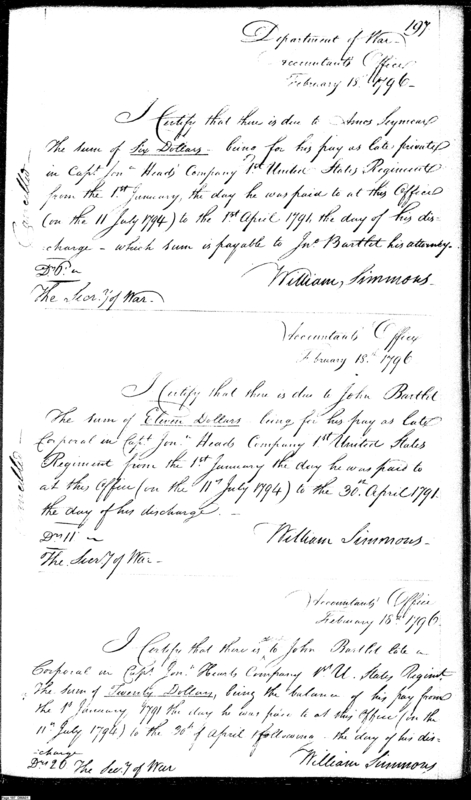 197
Department of War
Accountants Office
February 18th 1796
I Certify that there is due to Amos Seymour
The sum of Six Dollars being for his pay as late private
in Capt Jonn Heads Company 1st United States Regiment
from the 1st January, the day he was paid to at this Office
(on the 11 July 1794) to the 1st April 1791, the day of his dis-
charge - which sum is payable to Jno Bartlet his attorney.
Drs 6
William Simmons
The Secry of War
Cancelled
Accountants Office
February 18th 1796
I Certify that there is due to John Bartlet
The sum of Eleven Dollars being for his pay as late
Corporal in Capt Jonn Heads Company 1st United States
Regiment from the 1st January the day he was paid to
at this Office (on the 11th July 1794) to the 30th April 1791.
the day of his discharge.
Drs 11
William Simmons
The Secry of War
Cancelled
Accountants Office
February 18th 1796
I Certify that there is to John Bartlet late a
Corporal in Capt Jonn Hearts Company 1st U. States Regimt
The sum of Twenty Dollars, being the balance of his pay from
the 1st January 1791 the day he was paid to at this Office (on the
11th July 1794) to the 30th of April following - the day of his dis-
charge
Drs 20 The Secry of War
William Simmons